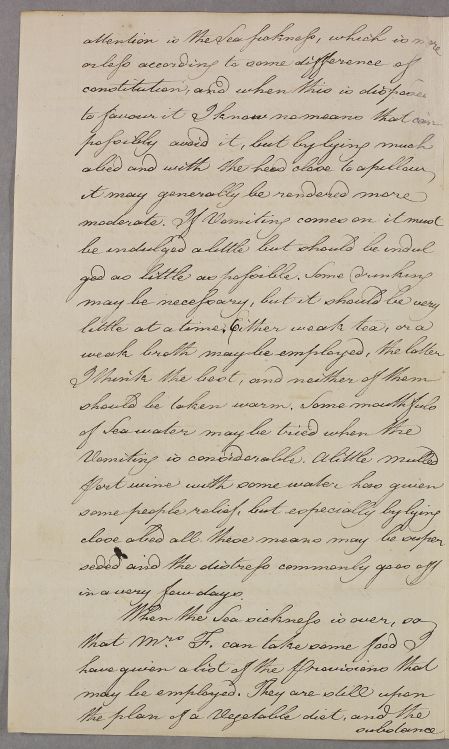 attention is the Sea sickness, which is more
or less according to some difference of
constitution, and when this is disposed
to favour it I know no means that can
possibly avoid it, but by lying much
abed and with the head close to a pillow,
it may generally be rendered more
moderate. If Vomiting comes on it must
be indulged a little but should be indul
ged as little as possible. Some drinking
may be necessary, but it should be very
little at a time; Either weak tea, or a
weak broth may be employed, the latter
I think the best, and neither of them
should be taken warm. Some mouthfuls
of Sea water may be tried when the
Vomiting is considerable. A little mulled
Port wine with some water has given
some people relief, but especially by lying
close abed all these means may be super
seded and the distress commonly goes off
in a very few days.
When the Sea sickness is over, so
that Mrs. F. can take some food I
have given a list of the Provisions that
may be employed. They are still upon
the plan of a Vegetable diet, and the
substance